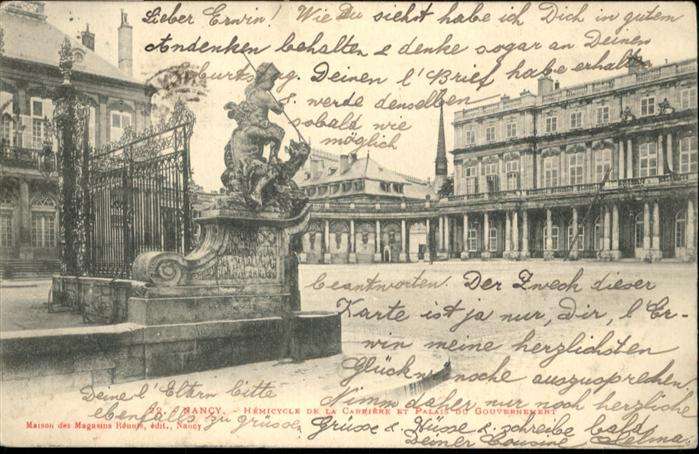 Lieber Erwin! Wie Du siehst habe ich Dich in gutem
Andenken behalten & denke sogar an Deinen
burtstag. Deinen l' Brief habe erhalten
& werde denselben
sobald wie
möglich
beantworten. Der Zweck dieser
Karte ist ja nur, Dir, l' Er-
win meine herzlichsten
Glückwünsche auszusprechen.
Nimm daher nur noch herzliche
Grüsse & Küsse & schreibe bald
Deiner Cousine Selma.
Deine l' Eltern bitte
ebenfalls zu grüssen
22. NANCY. - HÉMICYCLE DE LA CARRIÈRE ET PALAIS DU GOUVERNEMENT
Maison des Magasins Réunis, édit., Nancy